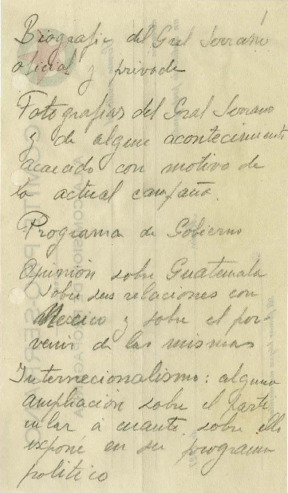 1
Biografia del Gral Serrano
oficial y privada
Fotografias del Gral Serrano
y de algun acontecimiento
acaecido con motivo de
la actual campaña.
Programa de Gobierno
Opinión sobre Guatemala
sobre sus relaciones con
Mexico y sobre el por-
venir de las mismas
Internacionalismo: alguna
ampliación sobre el parti
cular a cuanto sobre ello
expone en su programa
politico